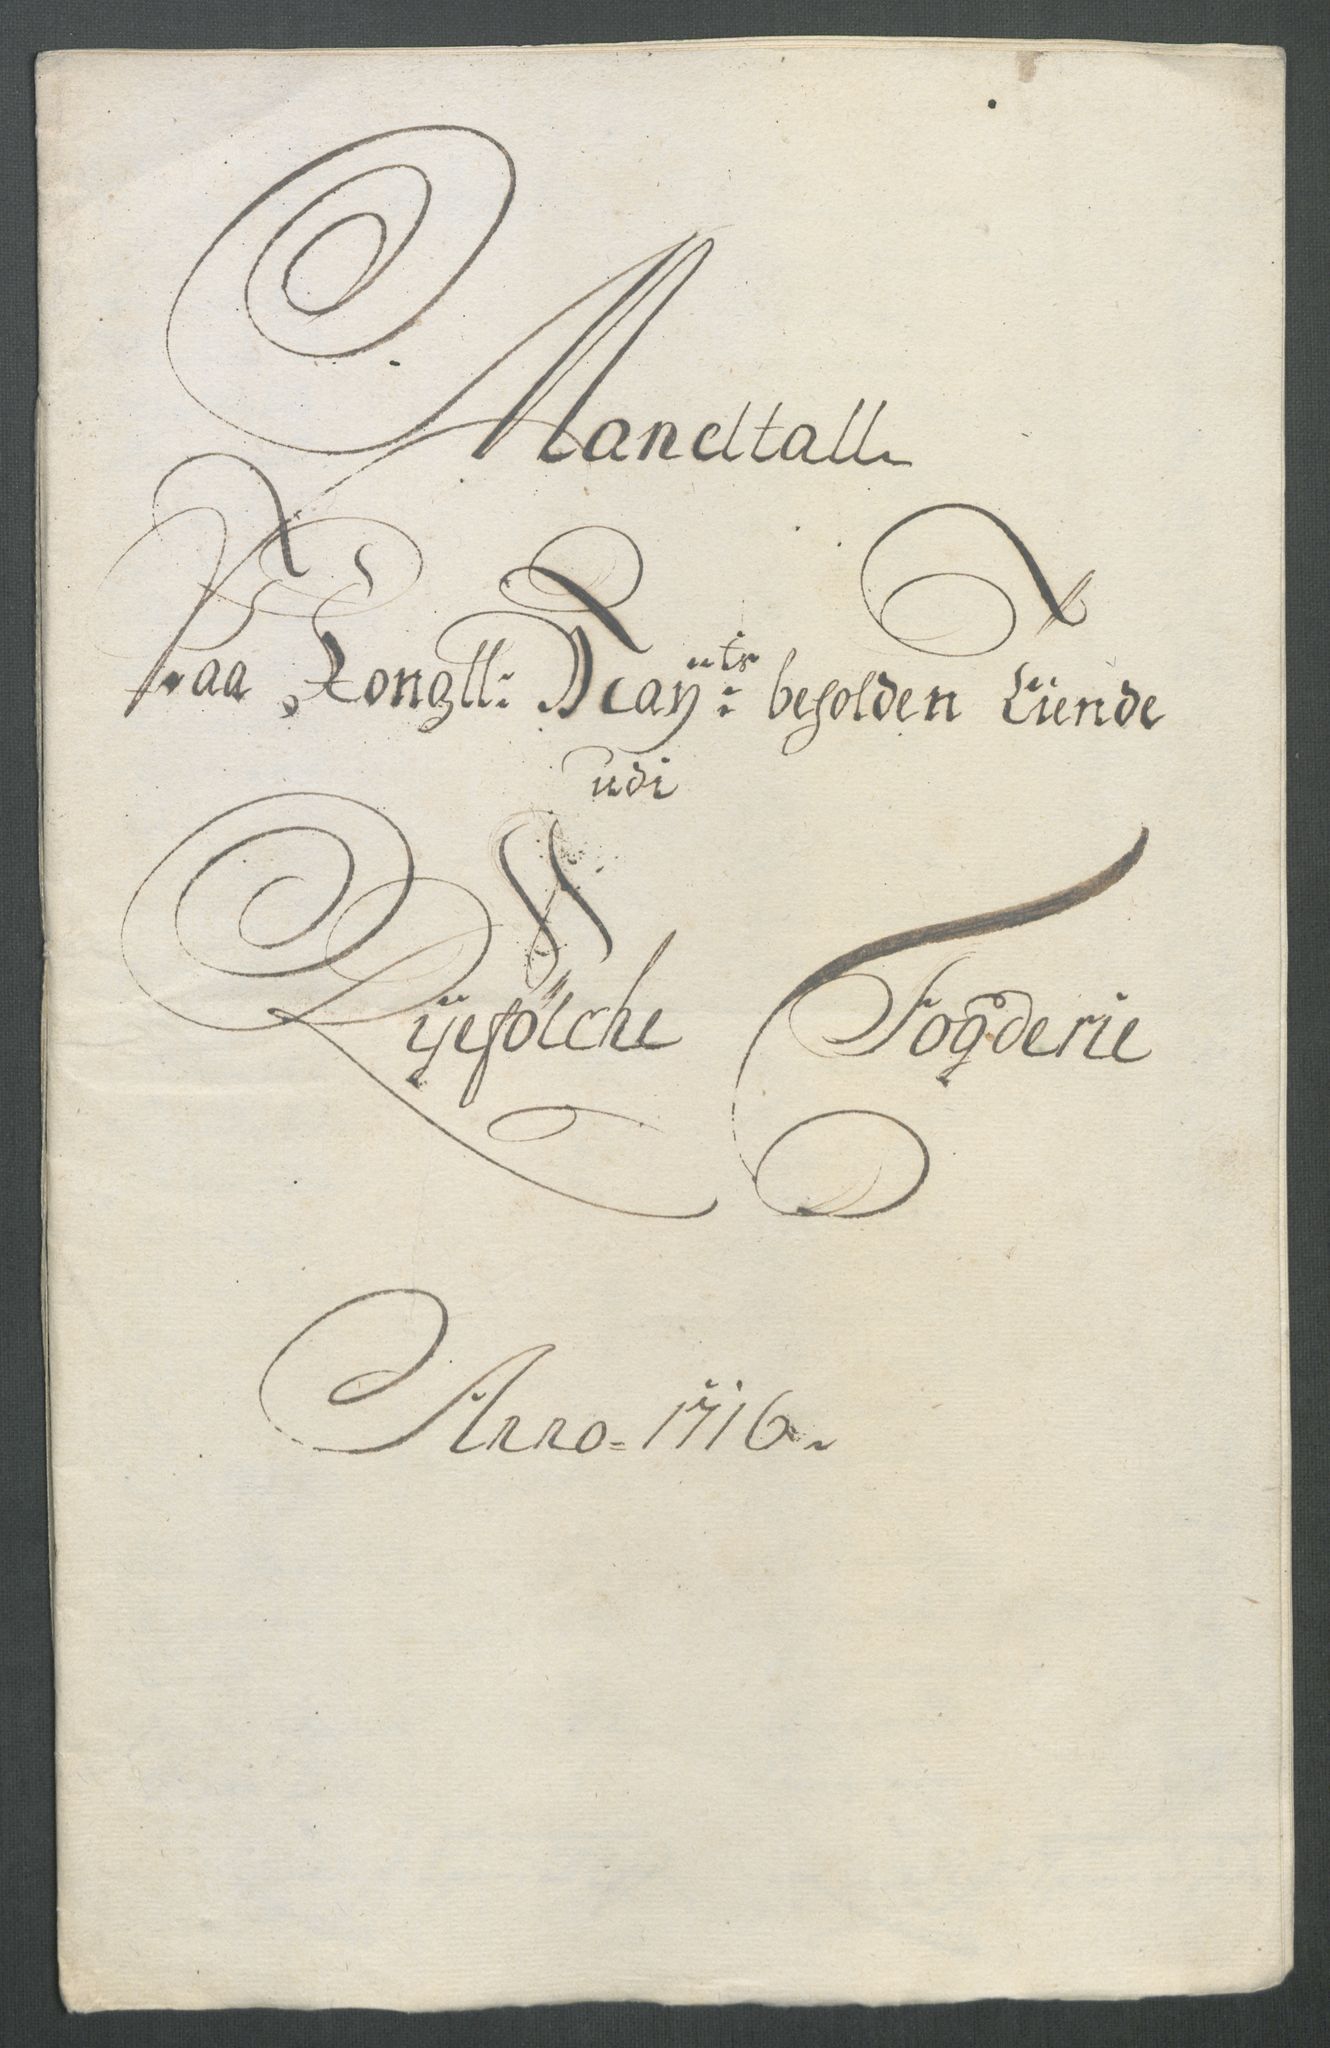 Mandtall
Paa Kongll: Mayts: beholden Tiende
udi
Ryefølche Fogderie
Anno 1716